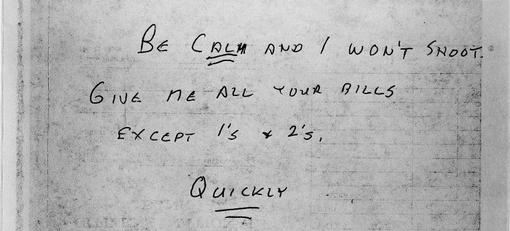 BE CALM AND I WON'T SHOOT.
GIVE ME ALL YOUR BILLS
EXCEPT 1'S & 2'S.
QUICKLY